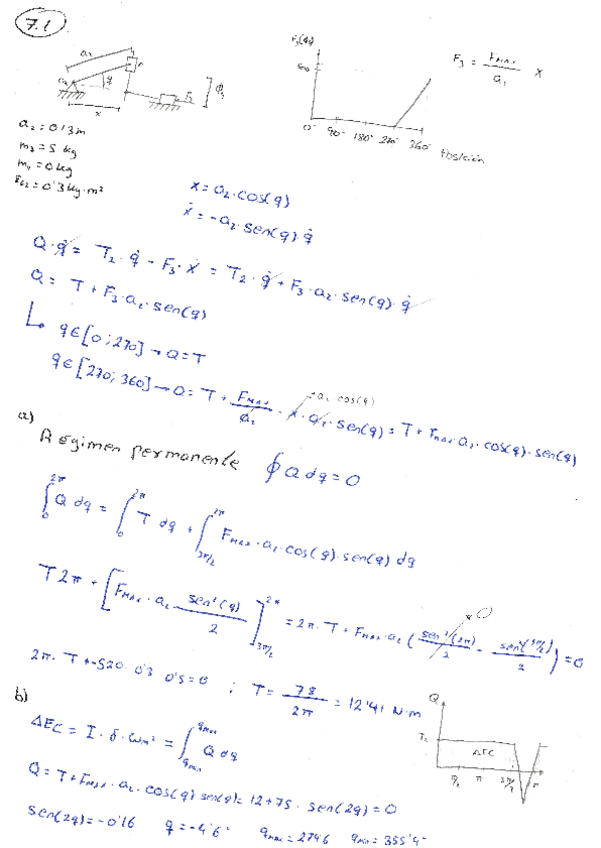 7.1
a₂
q
x
F₃
F₃(q)
500
0° 90° 180° 270° 360°
F₃ = F_MAX / a₂ x
a₂ = 0'3 m
m₃ = 5 kg
m₄ = 0 kg
= 0'3 kg·m²
x = a₂·cos(q)
ẋ = -a₂·sen(q)·q̇
Q·q̇ = T₂·q̇ - F₃·ẋ = T₂·q̇ + F₃·a₂·sen(q)·q̇
Q = T + F₃·a₂·sen(q)
q∈[0;270] → Q = T
q∈[270;360] → Q = T + F_MAX / a₂ · x · a₂ · sen(q) = T + F_MAX·a₂·cos(q)·sen(q)
a₂ cos(q)
a)
Régimen permanente ∮Q dq = 0
∫₀^2π Q dq = ∫₀^2π T dq + ∫_3π/2^2π F_MAX·a₂·cos(q)·sen(q) dq
T 2π + [F_MAX·a₂ sen²(q) / 2]_3π/2^2π = 2π·T + F_MAX·a₂ (sen²(2π) / 2 - sen²(3π/2) / 2) = 0
0
2π·T + -520·0'3·0'5 = 0 ; T = 78 / 2π = 12'41 N·m
b)
ΔEC = I·δ·ωm² = ∫_qmin^qmax Q dq
Q = T + F_MAX·a₂·cos(q) sen(q) = 12 + 75·sen(2q) = 0
sen(2q) = -0'16 q = -4'6° qmax = 274'6 qmin = 355'4°
Q
T₂
ΔEC
π/2 π 3π/2